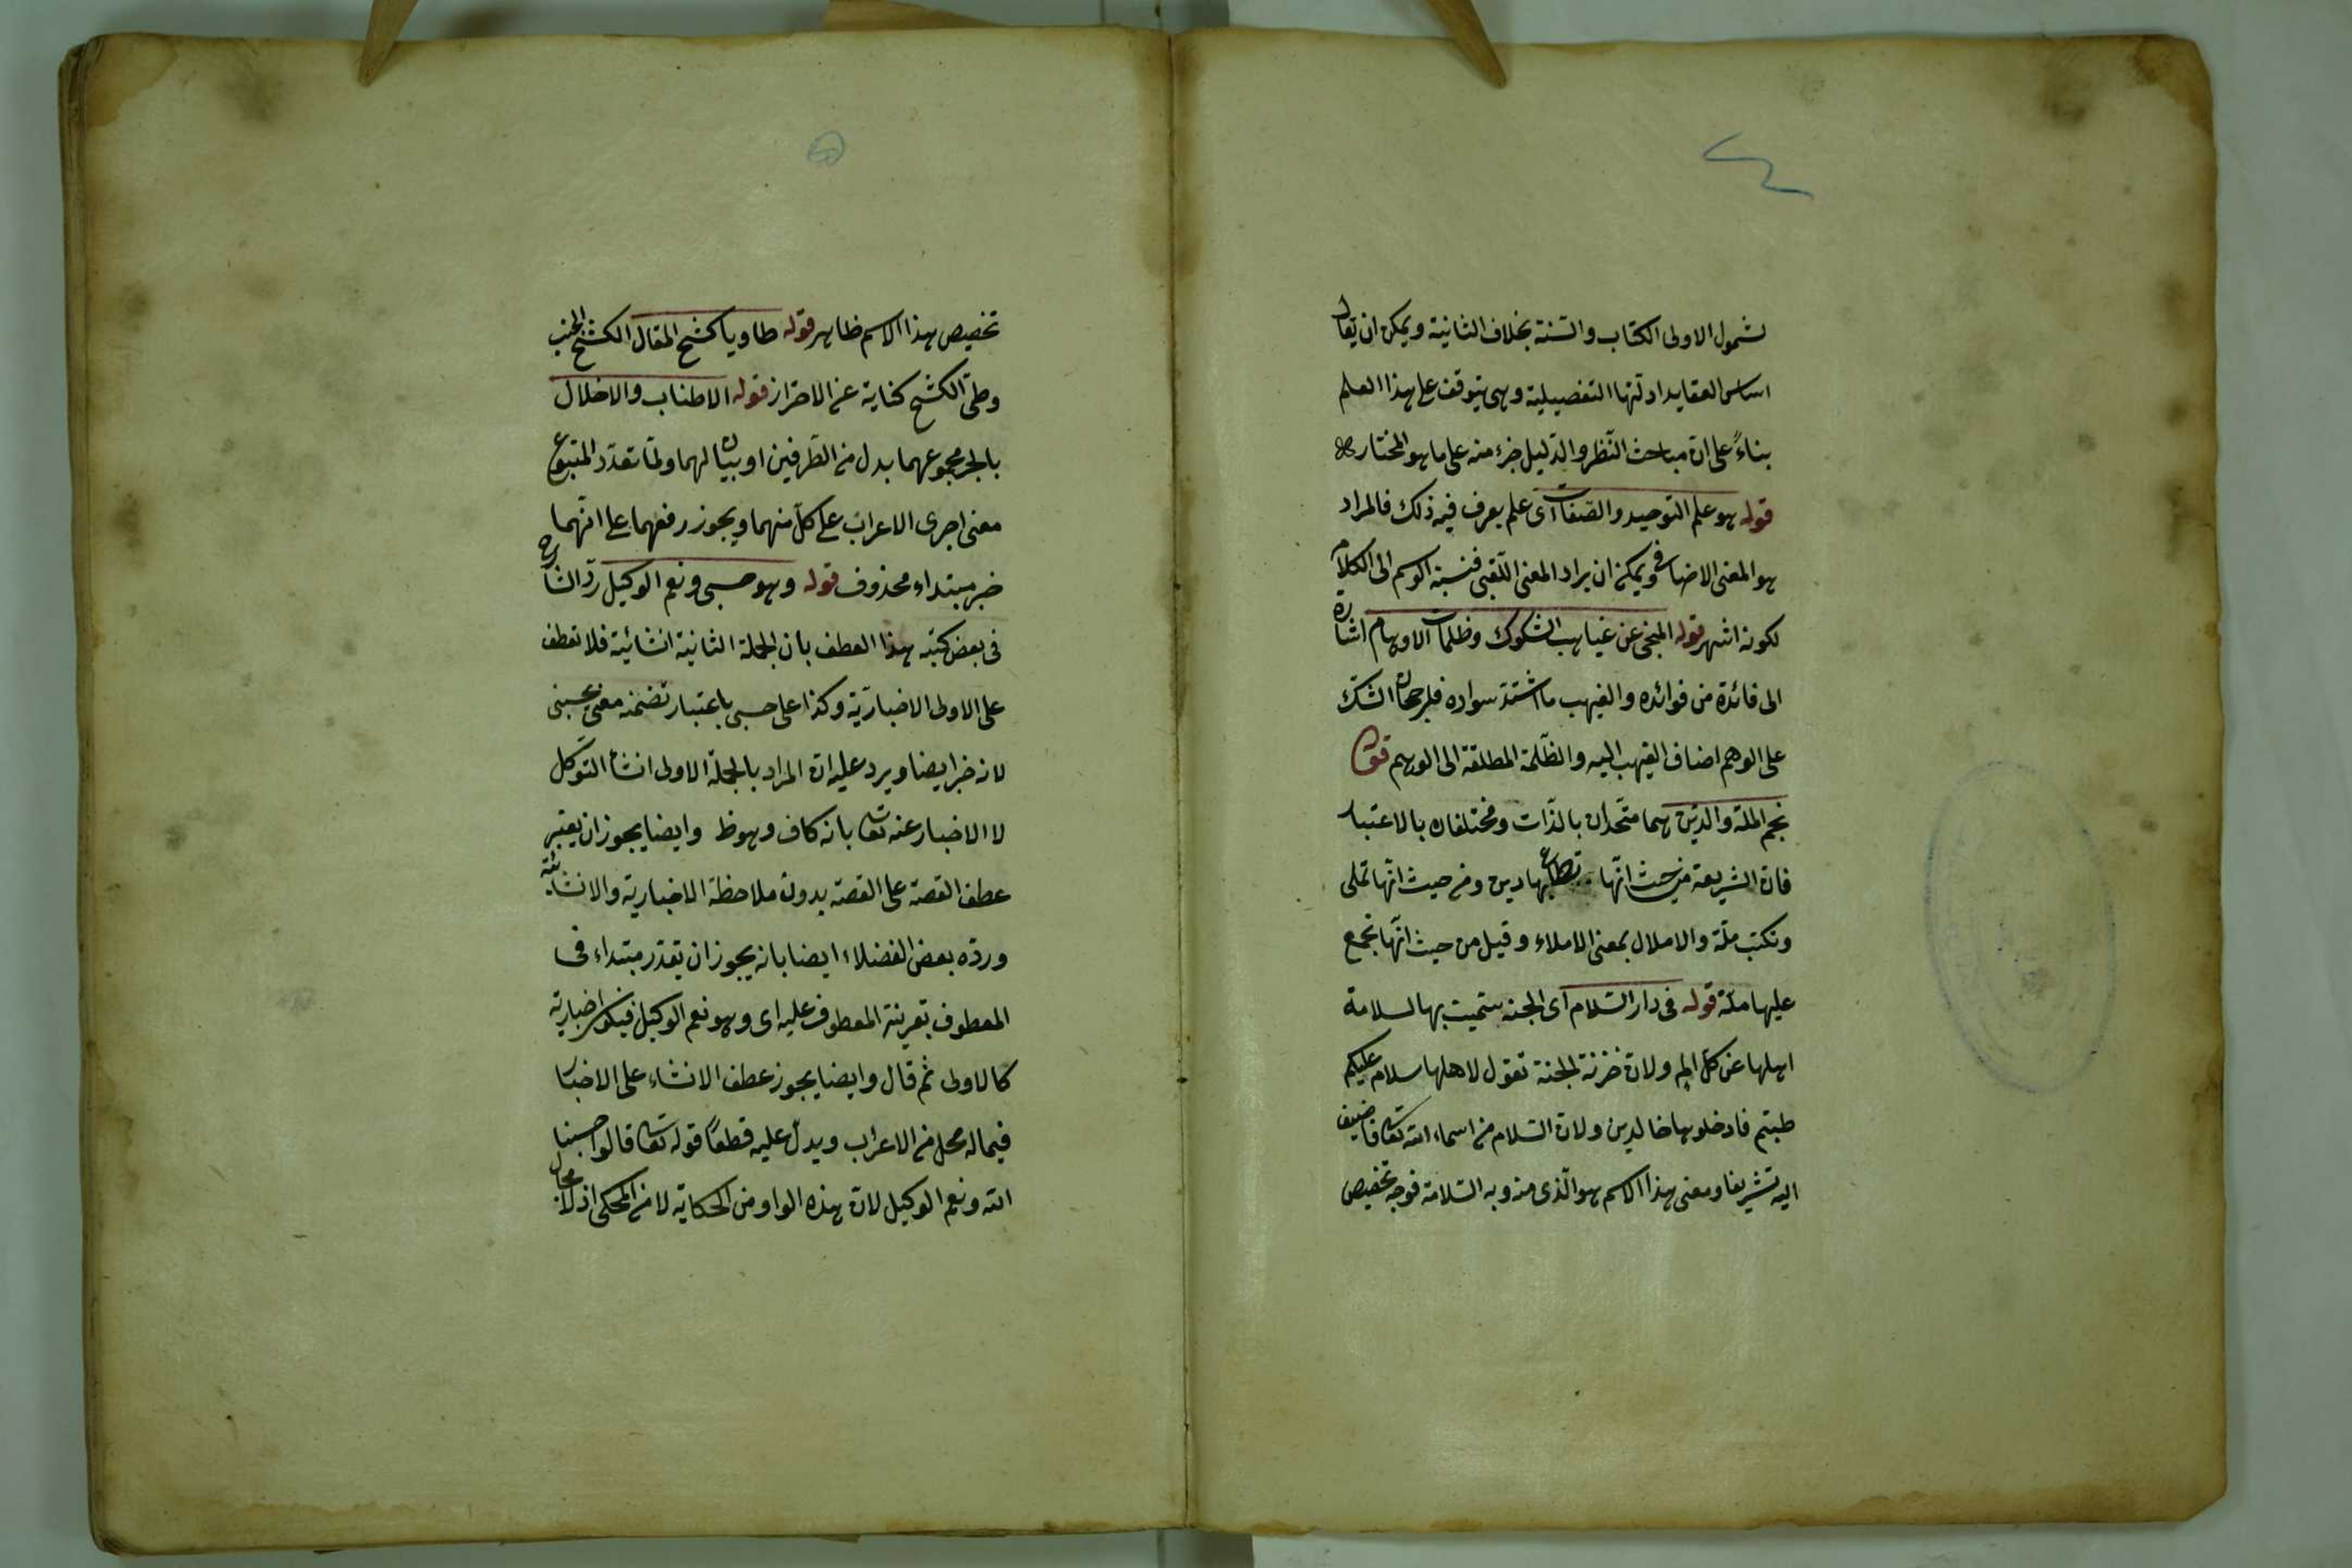 لشمول الاولى الكتاب والسنة بخلاف الثانية ويمكن ان يقال
اساس العقايد ادلتها التفصيلية وهى يتوقف على هذا العلم
بناءً على ان مباحث النّظر والدّليل جزء منه على ما هو المختار
قوله هو علم التوحيد والصّفات اى علم يعرف فيه ذلك فالمراد
هو المعنى الاضافى ويمكن ان يراد المعنى اللّقبى فنسبة الوسم الى الكلام
لكونه اشهر قوله المنجى عن غياهب الشكوك وظلمات الاوهام اشارة
الى فائدة من فوائده والغيهب ما اشتد سواده فلرجحان الشكّ
على الوهم اضاف الغيهب اليه والظّلمة المطلقة الى الوهم قوله
نجم الملة والدّين هما متّحدان بالذّات ومختلفان بالاعتبار
فان الشريعة من حيث انّها تطاع بها دين ومن حيث انّها تملى
وتكتب ملّة والاملال بمعنى الاملاء وقيل من حيث انّها تجمع
عليها ملّة قوله فى دار السّلام اى الجنة سمّيت بها لسلامة
اهلها عن كل الم ولان خزنة الجنة تقول لاهلها سلام عليكم
طبتم فادخلوها خالدين ولان السّلام من اسماء الله تعالى فاضيف
اليه تشريفا ومعنى هذا الاسم هو الّذى منه وبه السّلامة فوجه تخصيص
تخصيص هذا الاسم ظاهر قوله طاويا كشح المقال الكشح الجنب
وطىّ الكشح كناية عن الاحتراز قوله الاطناب والاخلال
بالجر مجموعهما بدل من الطّرفين او بيان لهما ولمّا تعدّد المتبوع
معنى اجرى الاعراب على كلّ منهما ويجوز رفعهما على انّهما
خبر مبتداء محذوف قوله وهو حسبى ونعم الوكيل ردّ الشارح
فى بعض كتبه هذا العطف بان الجملة الثانية انشائية فلا تعطف
على الاولى الاخباريّة وكذا على حسبى باعتبار تضمنه معنى يحسبنى
لانه خبر ايضا ويرد عليه ان المراد بالجملة الاولى انشاء التوكّل
لا الاخبار عنه تعالى بانه كاف وهو ظ وايضا يجوز ان يعتبر
عطف القصة على القصة بدون ملاحظة الاخبارية والانشائية
وردّه بعض الفضلاء ايضا بانه يجوز ان يقدّر مبتداء فى
المعطوف بقرينة المعطوف عليه اى وهو نعم الوكيل فيكون اخبارية
كالاولى ثم قال وايضا يجوز عطف الانشاء على الاخبار
فيما له محل من الاعراب ويدلّ عليه قطعاً قوله تعالى قالوا حسبنا
الله ونعم الوكيل لان هذه الواو من الحكاية لا من المحكى اذ لا مجال